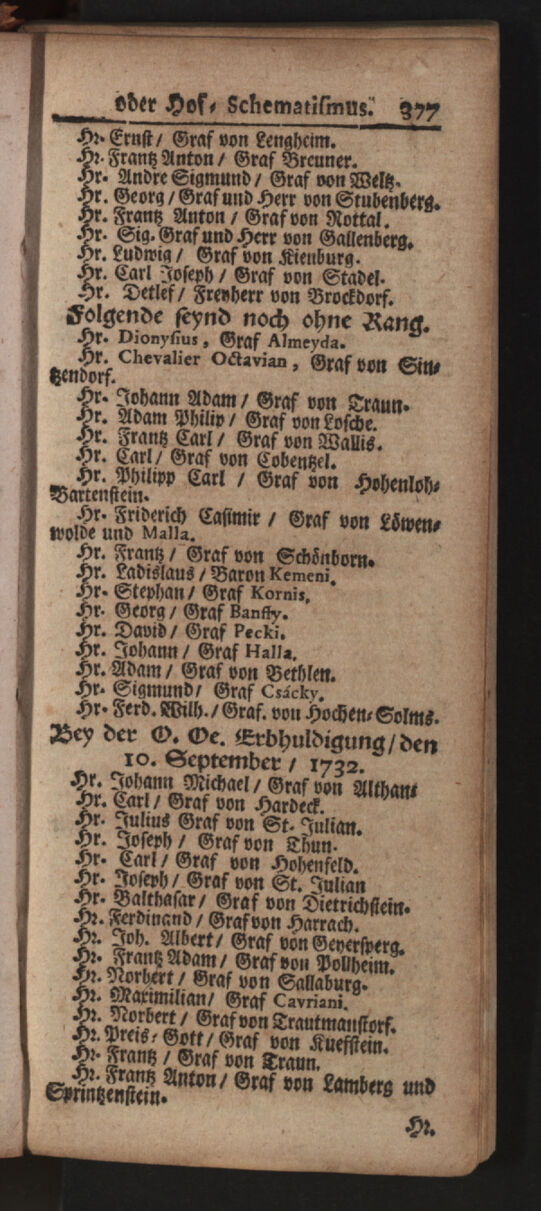 oder Hof-Schematismus. 377
Hr. Ernst / Graf von Lengheim.
Hr. Frantz Anton / Graf Breuner.
Hr. Andre Sigmund / Graf von Weltz.
Hr. Georg / Graf und Herr von Stubenberg.
Hr. Frantz Anton / Graf von Rottal.
Hr. Sig. Graf und Herr von Gallenberg.
Hr. Ludwig / Graf von Kienburg.
Hr. Carl Joseph / Graf von Stadel.
Hr. Detlef / Freyherr von Brockdorf.
Folgende seynd noch ohne Rang.
Hr. Dionysius, Graf Almeyda.
Hr. Chevalier Octavian, Graf von Sin-
tzendorf.
Hr. Johann Adam / Graf von Traun.
Hr. Adam Philip / Graf von Losche.
Hr. Frantz Carl / Graf von Wallis.
Hr. Carl / Graf von Cobentzel.
Hr. Philipp Carl / Graf von Hohenloh-
Bartenstein.
Hr. Friderich Casimir / Graf von Löwen-
wolde und Malla.
Hr. Frantz / Graf von Schönborn.
Hr. Ladislaus / Baron Kemeni.
Hr. Stephan / Graf Kornis.
Hr. Georg / Graf Banffy.
Hr. David / Graf Pecki.
Hr. Johann / Graf Halla.
Hr. Adam / Graf von Bethlen.
Hr. Sigmund / Graf Csácky.
Hr. Ferd. Wilh. / Graf. von Hochen-Solms.
Bey der O. Oe. Erbhuldigung / den
10. September / 1732.
Hr. Johann Michael / Graf von Althan-
Hr. Carl / Graf von Hardeck.
Hr. Julius Graf von St. Julian.
Hr. Joseph / Graf von Thun.
Hr. Carl / Graf von Hohenfeld.
Hr. Joseph / Graf von St. Julian
Hr. Balthasar / Graf von Dietrichstein.
Hr. Ferdinand / Graf von Harrach.
Hr. Joh. Albert / Graf von Geyersperg.
Hr. Frantz Adam / Graf von Pollheim.
Hr. Norbert / Graf von Sallaburg.
Hr. Maximilian / Graf Cavriani.
Hr. Norbert / Graf von Trautmanstorf.
Hr. Preis-Gott / Graf von Kuefstein.
Hr. Frantz / Graf von Traun.
Hr. Frantz Anton / Graf von Lamberg und
Sprintzenstein.
Hr.